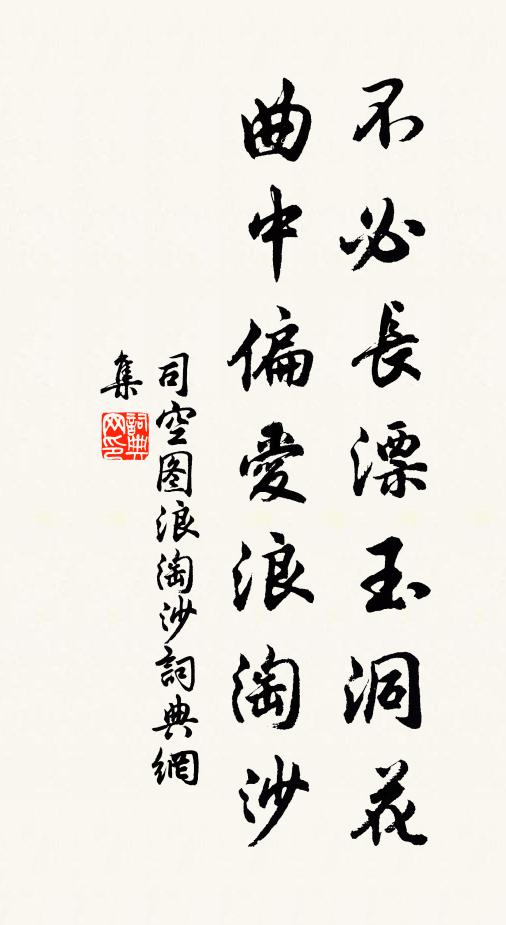 不必長漂玉洞花
曲中偏愛浪淘沙
司空图浪淘沙詞典網
集
詞典
网印